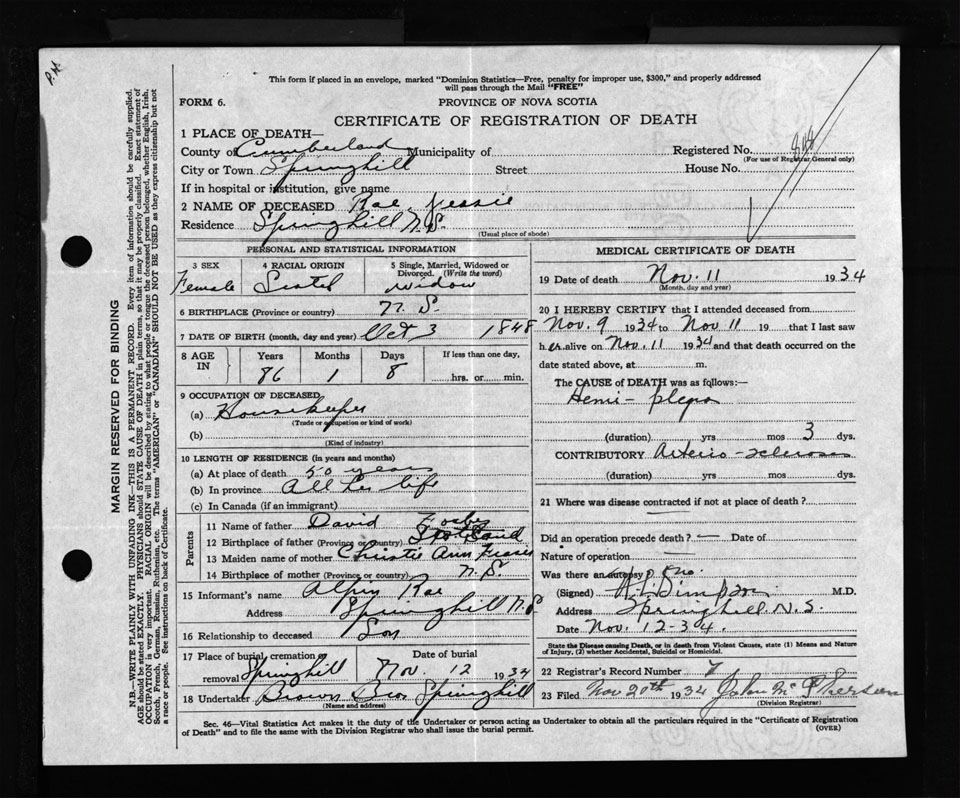 P.M.
This form if placed in an envelope, marked "Dominion Statistics—Free, penalty for improper use, $300," and properly addressed
will pass through the Mail "FREE"
FORM 6.
PROVINCE OF NOVA SCOTIA
CERTIFICATE OF REGISTRATION OF DEATH
1 PLACE OF DEATH—
County of Cumberland Municipality of Registered No.
(For use of Registrar General only)
City or Town Springhill Street House No.
If in hospital or institution, give name
2 NAME OF DECEASED Rae, Jessie
Residence Springhill N.S.
(Usual place of abode)
PERSONAL AND STATISTICAL INFORMATION
3 SEX 4 RACIAL ORIGIN 5 Single, Married, Widowed or Divorced. (Write the word)
Female Scotch Widow
6 BIRTHPLACE (Province or country) N. S.
7 DATE OF BIRTH (month, day and year) Oct 3 1848
8 AGE IN Years Months Days If less than one day,
86 1 8 hrs. or min.
9 OCCUPATION OF DECEASED
(a) Housekeeper
(Trade or occupation or kind of work)
(b)
(Kind of industry)
10 LENGTH OF RESIDENCE (in years and months)
(a) At place of death 50 years
(b) In province All her life
(c) In Canada (if an immigrant)
Parents
11 Name of father David Forbes
12 Birthplace of father (Province or country) Scotland
13 Maiden name of mother Christie Ann Fraser
14 Birthplace of mother (Province or country) N. S.
15 Informant's name Alpin Rae
Address Springhill N.S.
16 Relationship to deceased Son
17 Place of burial, cremation or removal Date of burial
Springhill Nov 12 1934
18 Undertaker Brown Bros Springhill
(Name and address)
MEDICAL CERTIFICATE OF DEATH
19 Date of death Nov. 11 1934
(Month, day and year)
20 I HEREBY CERTIFY that I attended deceased from
Nov. 9 1934 to Nov 11 19 that I last saw
her alive on Nov. 11 1934 and that death occurred on the
date stated above, at m.
The CAUSE of DEATH was as follows:—
Hemi-plegia
(duration) yrs mos 3 dys.
CONTRIBUTORY Arterio-sclerosis
(duration) yrs mos dys.
21 Where was disease contracted if not at place of death?
Did an operation precede death? — Date of
Nature of operation —
Was there an autopsy? no.
(Signed) Simpson M.D.
Address Springhill N.S.
Date Nov. 12-34.
State the Disease causing Death, or in death from Violent Causes, state (1) Means and Nature of Injury, (2) whether Accidental, Suicidal or Homicidal.
22 Registrar's Record Number 7
23 Filed Nov 20th 1934 John McPherson
(Division Registrar)
Sec. 46—Vital Statistics Act makes it the duty of the Undertaker or person acting as Undertaker to obtain all the particulars required in the "Certificate of Registration
of Death" and to file the same with the Division Registrar who shall issue the burial permit.
(OVER)
MARGIN RESERVED FOR BINDING
N.B.—WRITE PLAINLY WITH UNFADING INK—THIS IS A PERMANENT RECORD. Every item of information should be carefully supplied.
AGE should be stated EXACTLY. PHYSICIANS should STATE CAUSE OF DEATH in plain terms, so that it may be properly classified. Exact statement of
OCCUPATION is very important. RACIAL ORIGIN will be described by stating to what people or tongue the deceased person belonged, whether English, Irish,
Scotch, French, German, Russian, Ruthenian, etc. The terms "AMERICAN" or "CANADIAN" SHOULD NOT BE USED as they express citizenship but not
a race or people. See instructions on back of Certificate.